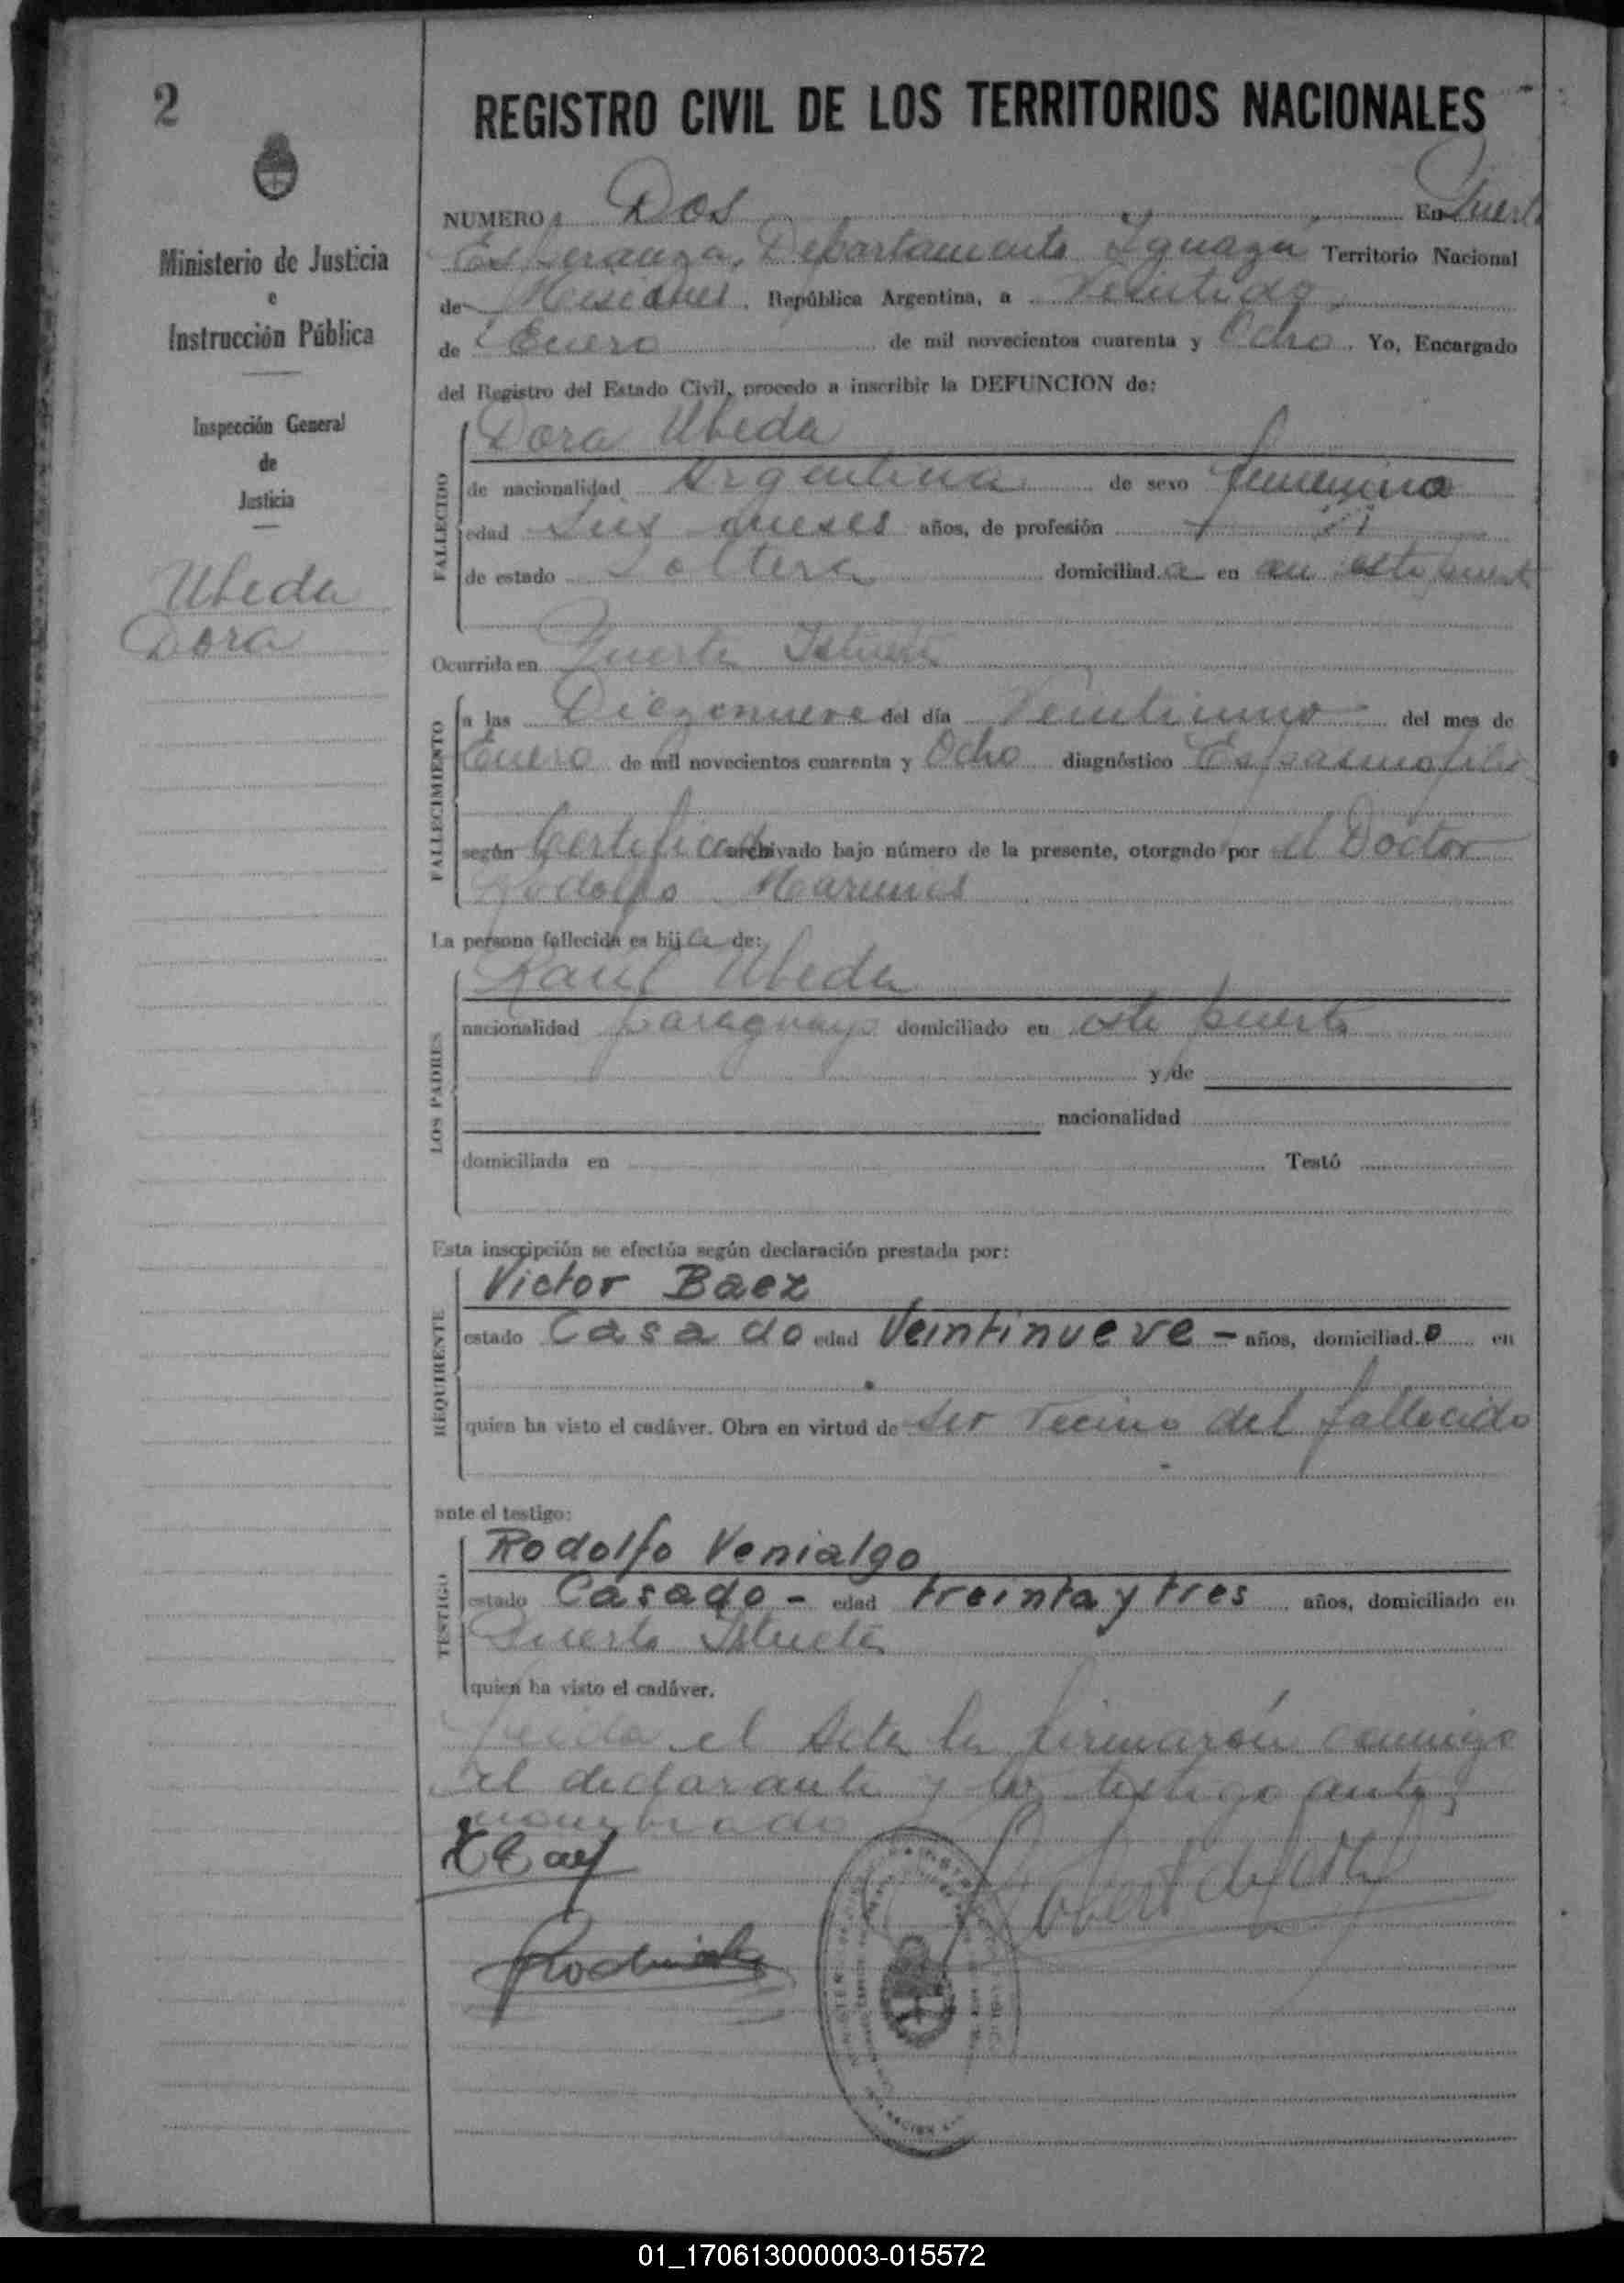 2
Ministerio de Justicia
e
Instrucción Pública
Inspección General
de
Justicia
Ubeda
Dora
REGISTRO CIVIL DE LOS TERRITORIOS NACIONALES
NUMERO Dos En Puerto
Esperanza, Departamento Iguazú Territorio Nacional
de Misiones. República Argentina, a Veintidos
de Enero de mil novecientos cuarenta y Ocho. Yo, Encargado
del Registro del Estado Civil, procedo a inscribir la DEFUNCION de:
FALLECIDO
Dora Ubeda
de nacionalidad Argentina de sexo femenino
edad Seis meses años, de profesión
de estado Soltera domiciliada en en este puerto
Ocurrida en Puerto
FALLECIMIENTO
a las Diezenueve del día Veintiuno del mes de
Enero de mil novecientos cuarenta y Ocho diagnóstico Espasmofilia
según Certificado archivado bajo número de la presente, otorgado por el Doctor
Rodolfo
La persona fallecida es hija de:
LOS PADRES
Raúl Ubeda
nacionalidad paraguayo domiciliado en este puerto
y de
nacionalidad
domiciliada en Testó
Esta inscripción se efectúa según declaración prestada por:
REQUIRENTE
Victor Baez
estado Casado edad Veintinueve - años, domiciliado en
quien ha visto el cadáver. Obra en virtud de ser vecino del fallecido
ante el testigo:
TESTIGO
Rodolfo Venialgo
estado Casado - edad treinta y tres años, domiciliado en
Puerto
quien ha visto el cadáver.
Leida el Acta la firmarón conmigo
el declarante y los testigo ante
nombrado
01_170613000003-015572